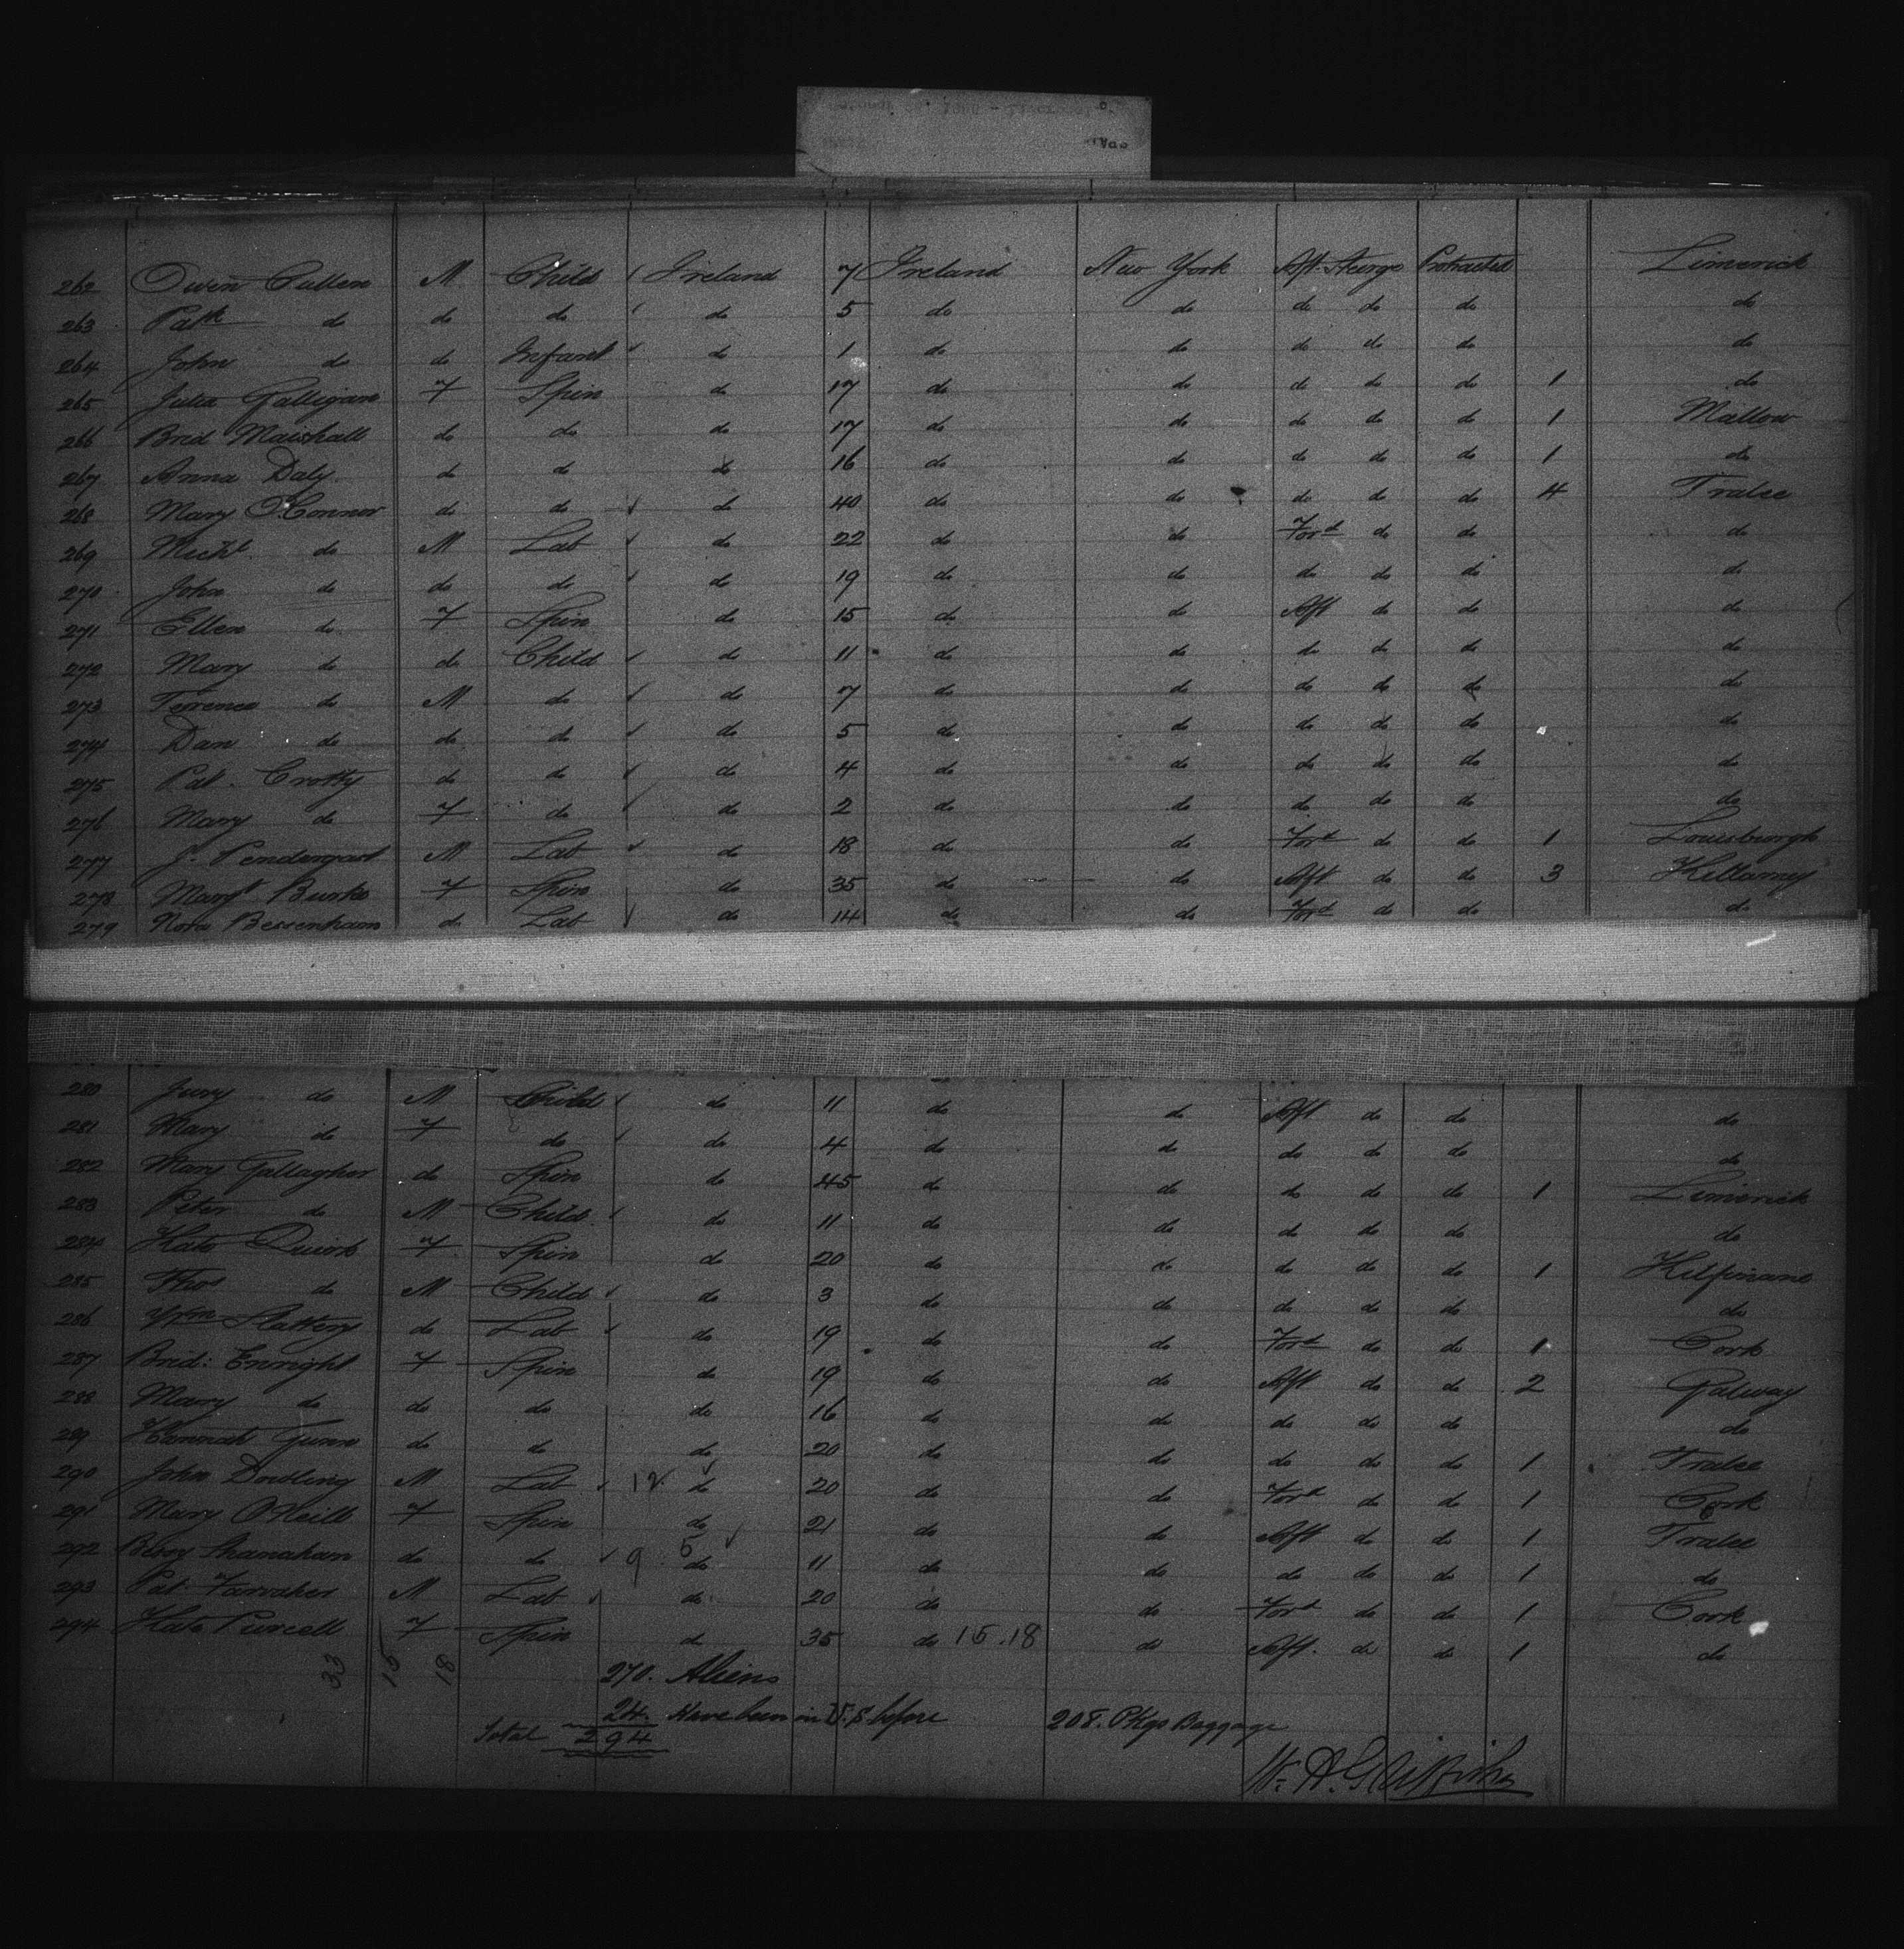 262 Owen Cullen M Child Ireland 7 Ireland New York Aft. Steerge Protracted Limerick
263 Patk do do do do 5 do do do do do do
264 John do do Infant do 1 do do do do do do
265 Julia Galligan F Spin do 17 do do do do do 1 do
266 Brid Marshall do do do 17 do do do do do 1 Mallow
267 Anna Daly do do do 16 do do do do do 1 do
268 Mary O'Connor do do do 40 do do do do do 4 Tralee
269 Michl do M Lab do 22 do do Ford do do do
270 John do do do do 19 do do do do do do
271 Ellen do F Spin do 15 do do Aft do do do
272 Mary do do Child do 11 do do do do do do
273 Terrence do M do do 7 do do do do do do
274 Dan do do do do 5 do do do do do do
275 Pat. Crotty do do do 4 do do do do do do
276 Mary do F do do 2 do do do do do do
277 J. Pendergast M Lab do 18 do do Ford do do 1 Louisburgh
278 Margt Burke F Spin do 35 do do Aft do do 3 Killarney
279 Nora do Lab do 14 do do Ford do do do
280 do M Child do 11 do do Aft do do do
281 Mary do F do do 4 do do do do do do
282 Mary Gallagher do Spin do 45 do do do do do 1 Limerick
283 Peter do M Child do 11 do do do do do do
284 Kate Quirk F Spin do 20 do do do do do 1 Kilfinane
285 Thos do M Child do 3 do do do do do do
286 Wm Slattery do Lab do 19 do do Ford do do 1 Cork
287 Brid: Enright F Spin do 19 do do Aft do do 2 Galway
288 Mary do do do do 16 do do do do do do
289 Hannah do do do 20 do do do do do 1 Tralee
290 John Dowling M Lab 12 do 20 do do Ford do do 1 Cork
291 Mary O'Neill F Spin do 21 do do Aft do do 1 Tralee
292 Shanahan do do 9 5 do 11 do do do do do 1 do
293 Pat. M Lab do 20 do do Ford do do 1 Cork
294 Kate Purcell F Spin do 35 do 15.18 do Aft. do do 1 do
33 15 18 270. Aliens
24. Have been in U.S before 208. Pkgs Baggage
Total 294